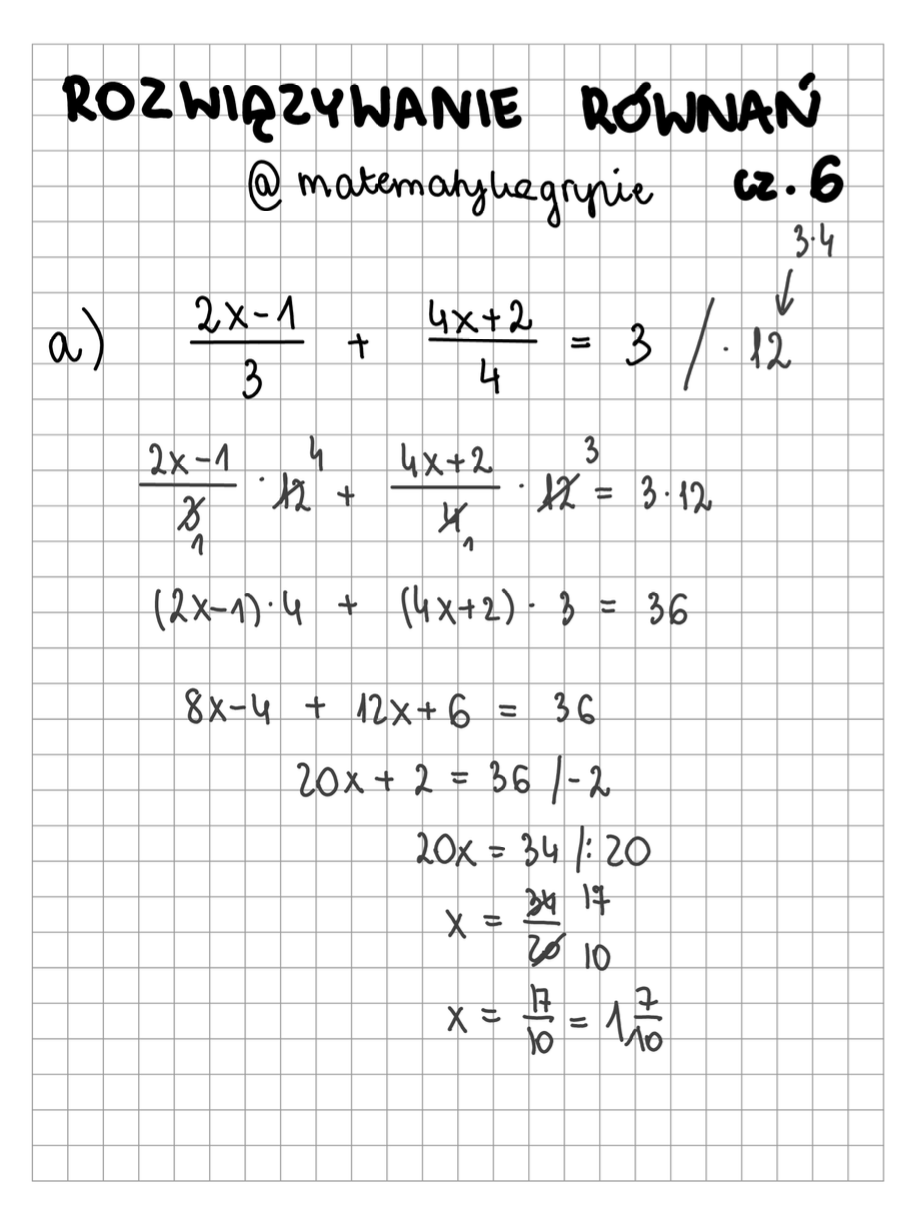 ROZWIĄZYWANIE RÓWNAŃ
@matematykagrypie cz. 6
3·4
a) (2x-1)/3 + (4x+2)/4 = 3 / · 12
(2x-1)/3 1 · 12 4 + (4x+2)/4 1 · 12 3 = 3·12
(2x-1)·4 + (4x+2)· 3 = 36
8x-4 + 12x+6 = 36
20x + 2 = 36 /-2
20x = 34 /: 20
x = 34/20 17 10
x = 17/10 = 1 7/10